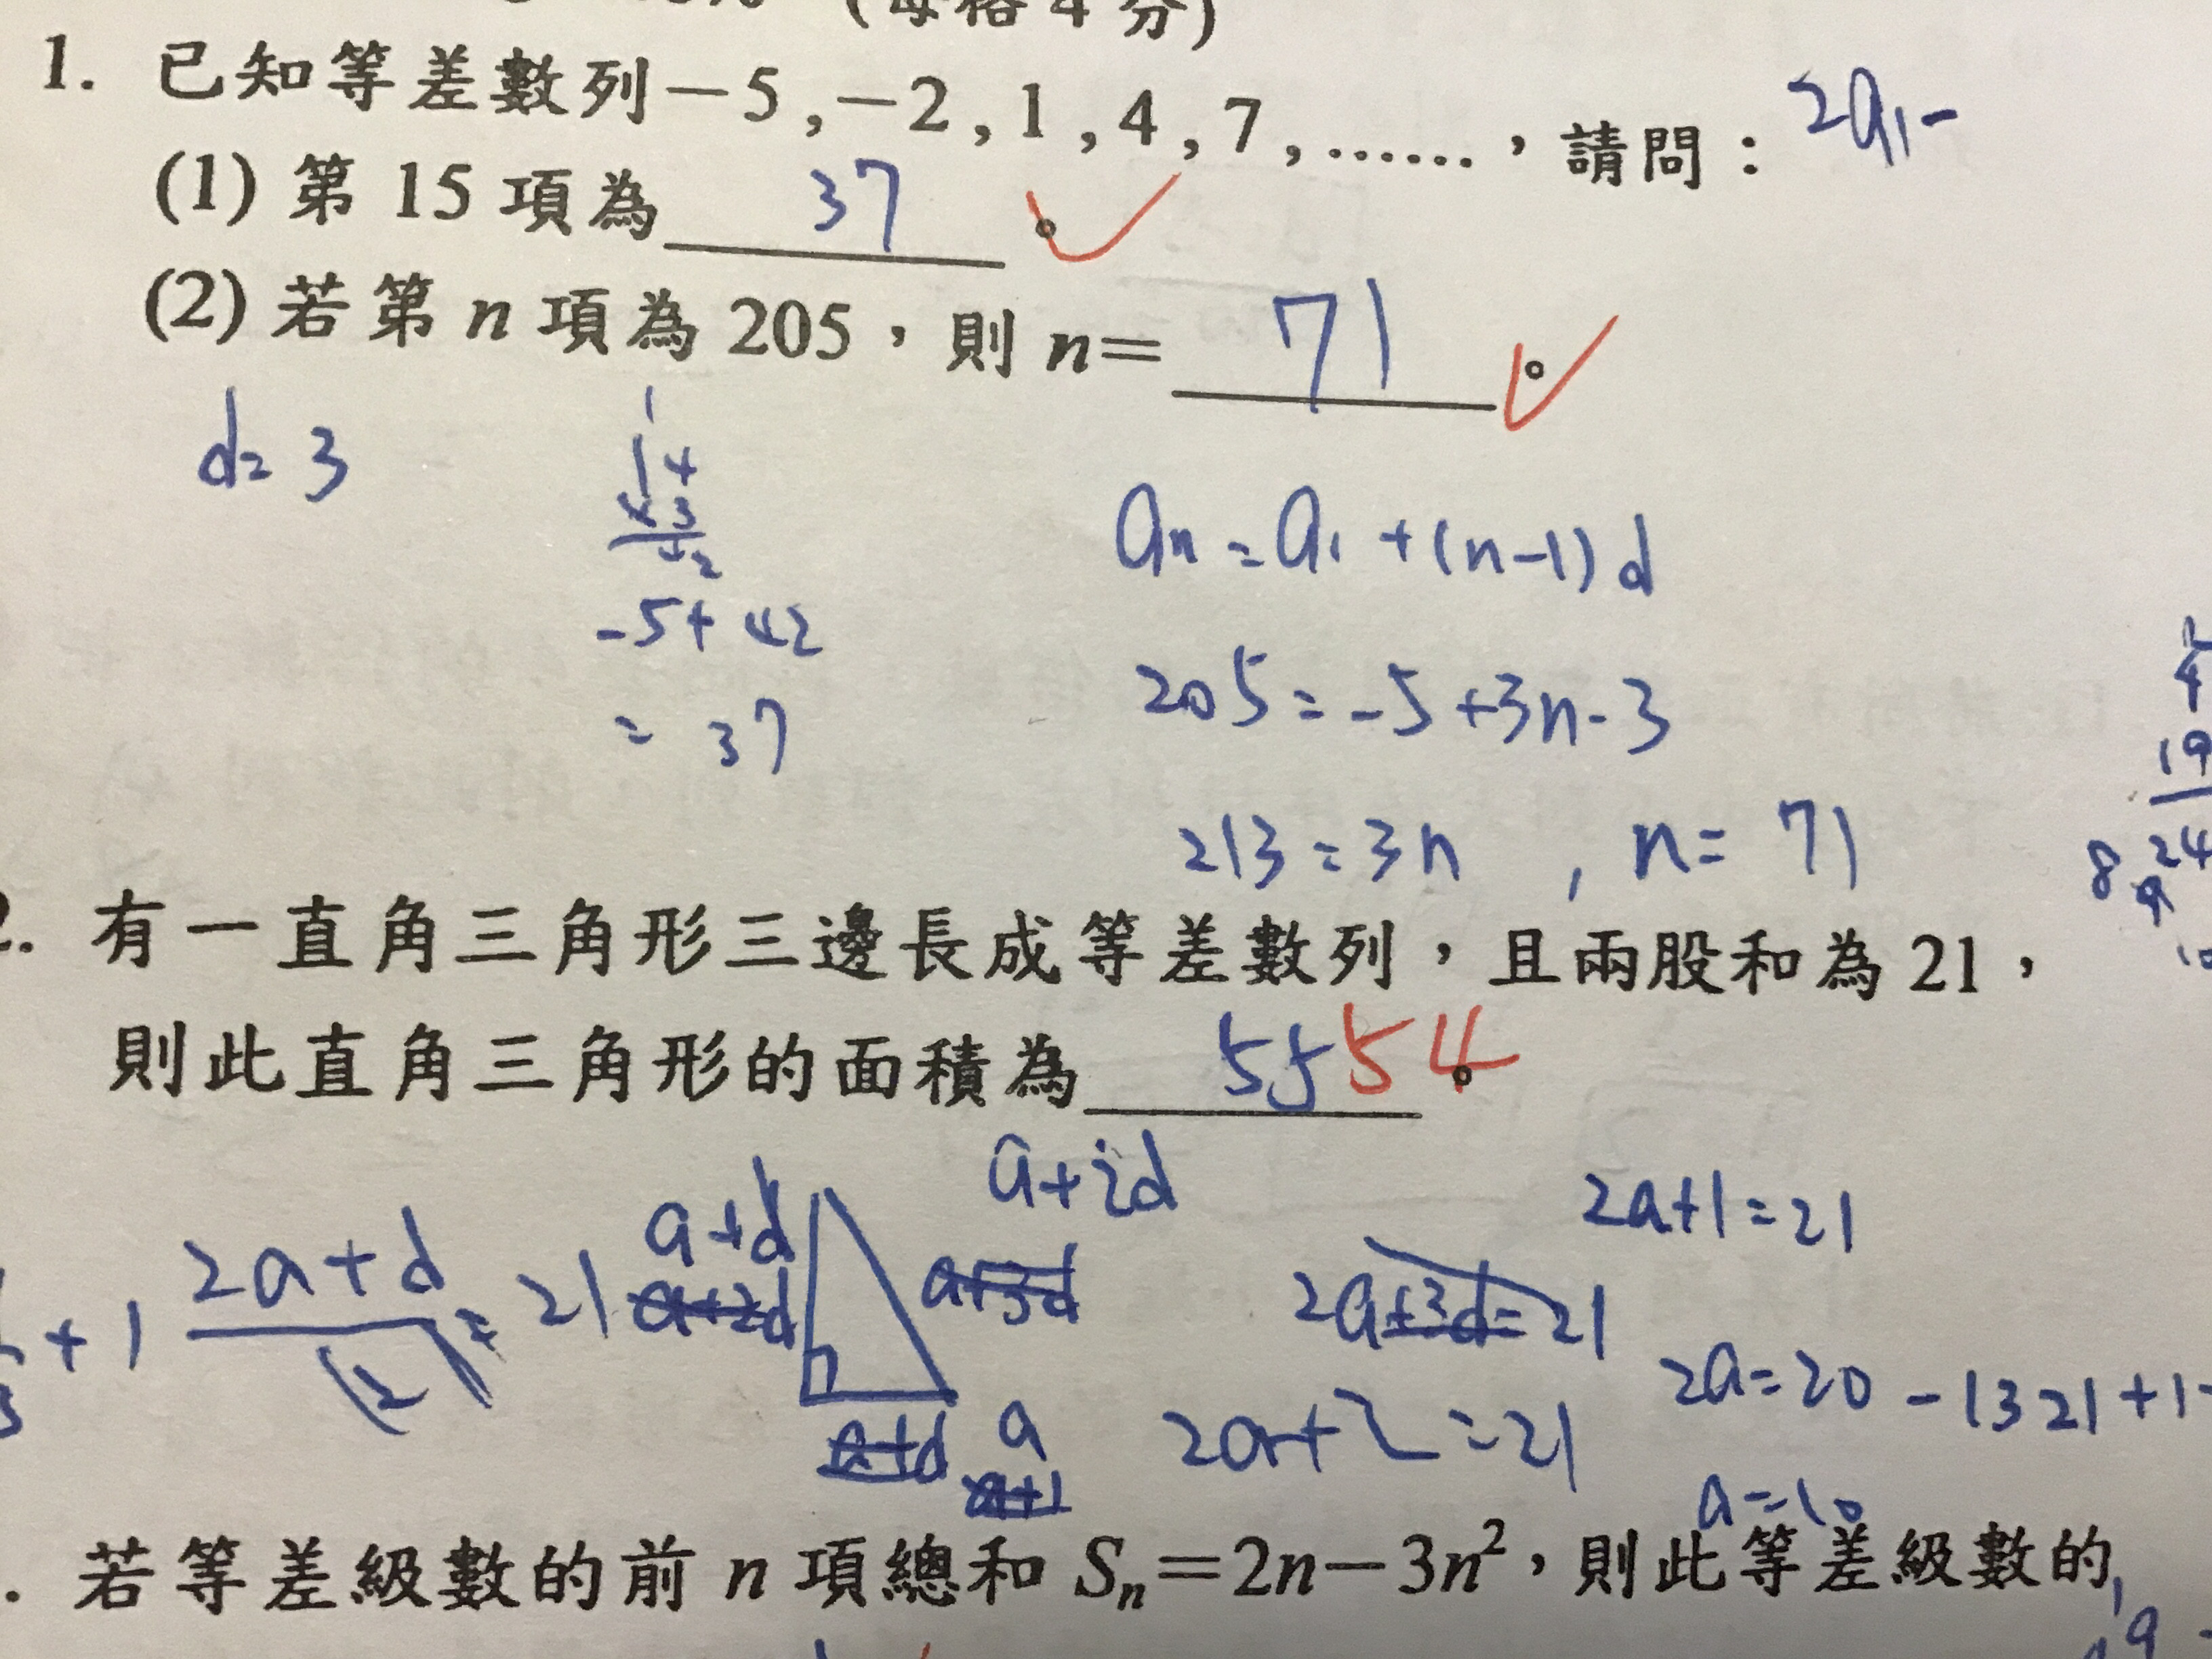 (每格4分)
1. 已知等差數列－5,－2,1,4,7,……，請問：
2a₁-
(1) 第 15 項為 37
(2) 若第 n 項為 205，則 n= 71
d=3
14
×3
42
-5+42
=37
an=a₁+(n-1)d
205=-5+3n-3
213=3n , n=71
19
24
8
有一直角三角形三邊長成等差數列，且兩股和為 21，
則此直角三角形的面積為 55 54
a+2d
a+d
2a+d
=21
+1
a+2d
a+3d
2a+1=21
2a+3d=21
a+d
a
a+1
2a+2=21
2a=20
-1321+1
a=10
若等差級數的前 n 項總和 Sₙ=2n－3n²，則此等差級數的